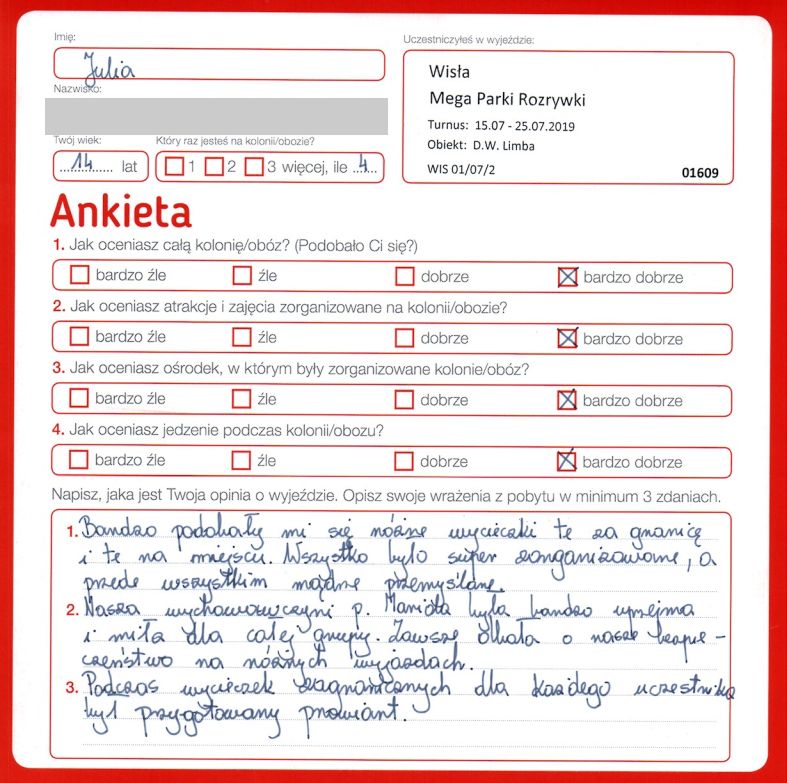 Imię:
Julia
Nazwisko:
Twój wiek:
14 lat
Który raz jesteś na kolonii/obozie?
1 2 3 więcej, ile 4
Uczestniczyłeś w wyjeździe:
Wisła
Mega Parki Rozrywki
Turnus: 15.07 - 25.07.2019
Obiekt: D.W. Limba
WIS 01/07/2 01609
Ankieta
1. Jak oceniasz całą kolonię/obóz? (Podobało Ci się?)
bardzo źle źle dobrze bardzo dobrze
2. Jak oceniasz atrakcje i zajęcia zorganizowane na kolonii/obozie?
bardzo źle źle dobrze bardzo dobrze
3. Jak oceniasz ośrodek, w którym były zorganizowane kolonie/obóz?
bardzo źle źle dobrze bardzo dobrze
4. Jak oceniasz jedzenie podczas kolonii/obozu?
bardzo źle źle dobrze bardzo dobrze
Napisz, jaka jest Twoja opinia o wyjeździe. Opisz swoje wrażenia z pobytu w minimum 3 zdaniach.
1. Bardzo podobały mi się różne wycieczki te za granicę
i te na miejscu. Wszystko było super zorganizowane, a
przede wszystkim mądrze przemyślane.
2. Nasza wychowawczyni p. Mariola była bardzo uprzejma
i miła dla całej grupy. Zawsze dbała o nasze bezpie-
czeństwo na różnych wyjazdach.
3. Podczas wycieczek zagranicznych dla każdego uczestnika
był przygotowany prowiant.